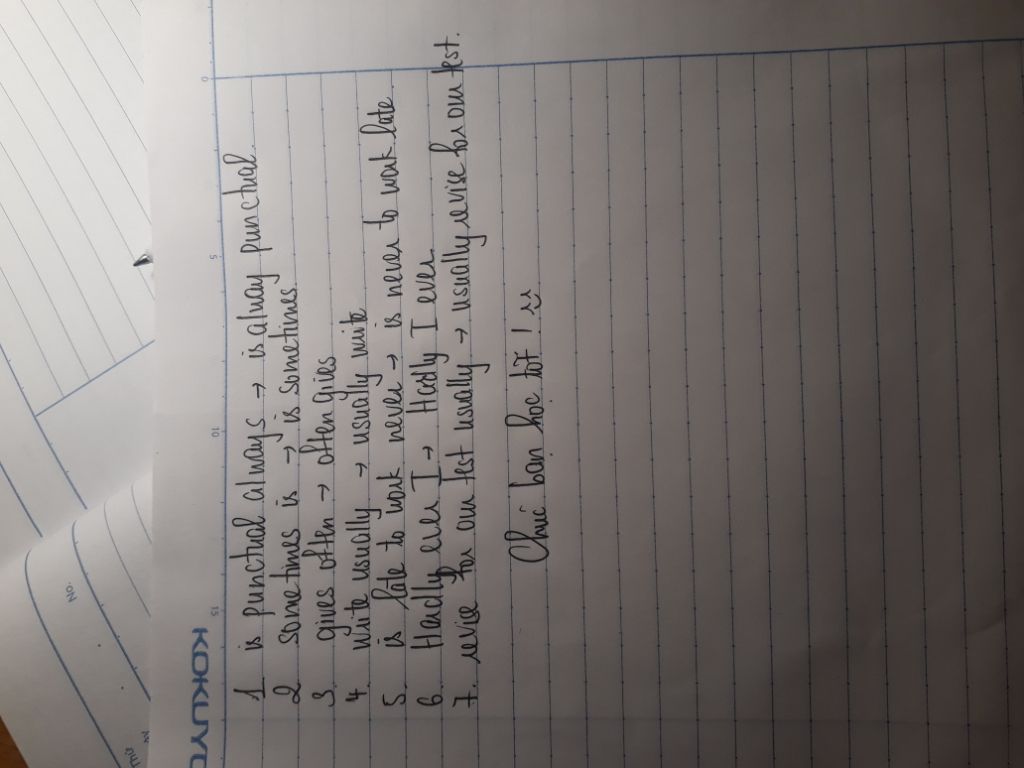 KOKUYO
0 5 10 15
1 is punctual always → is alway punctual.
2 sometimes is → is sometimes.
3 gives often → often gives
4. write usually → usually write
5. is late to work never → is never to work late
6 Hardly ever I → Hardly I ever.
7. revise for our test usually → usually revise for our test.
Chúc bạn học tốt!
No.
Thứ